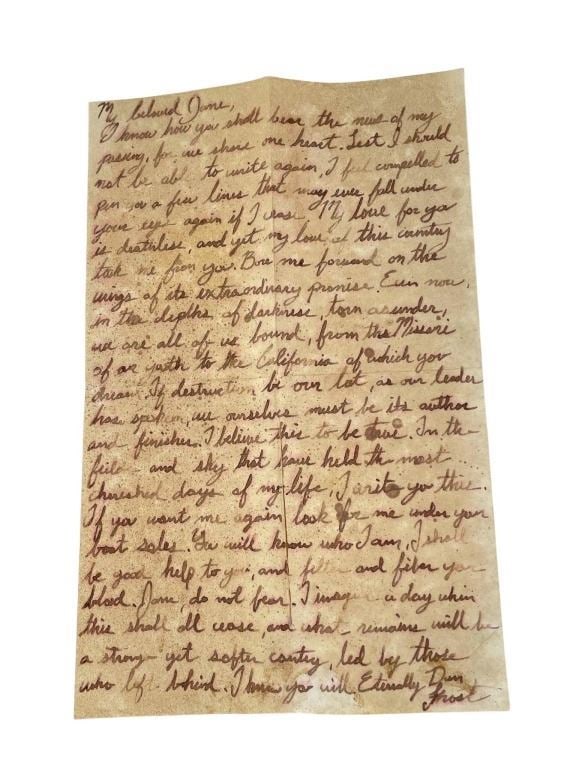 My beloved Jane,
I know how you shall bear the news of my
passing, for we share one heart. Lest I should
not be abl to write again, I feel compelled to
pen you a few lines that may ever fall under
your eye again if I cease. My love for you
is deathless, and yet my love of this country
took me from you. Bore me forward on the
wings of its extraordinary promise. Even now,
in the depths of darkness, torn asunder,
we are all of us bound, from the Missori
of our youth to the California of which you
dream. If destruction be our lot, as our leader
has spoken, we ourselves must be its author
and finisher. I believe this to be true. In the
and sky that have held the most
cherished days of my life, I write you this.
If you want me again look for me under your
boot soles. You will know who I am, I shall
be good help to you, and filter and fiber your
blood. Jane, do not fear. I imagine a day when
this shall all cease, and what remains will be
a strong yet softer country, led by those
who left behind. I know you will Eternally
Frost